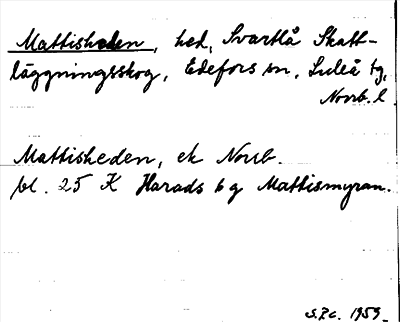 Mattisheden, hed, Svartlå Skatt-
läggningsskog, Edefors sn, Luleå tg,
Norrb. l.
Mattisheden, ek Norrb.
bl. 25 K Harads b g Mattismyran.
S.P.c. 1959